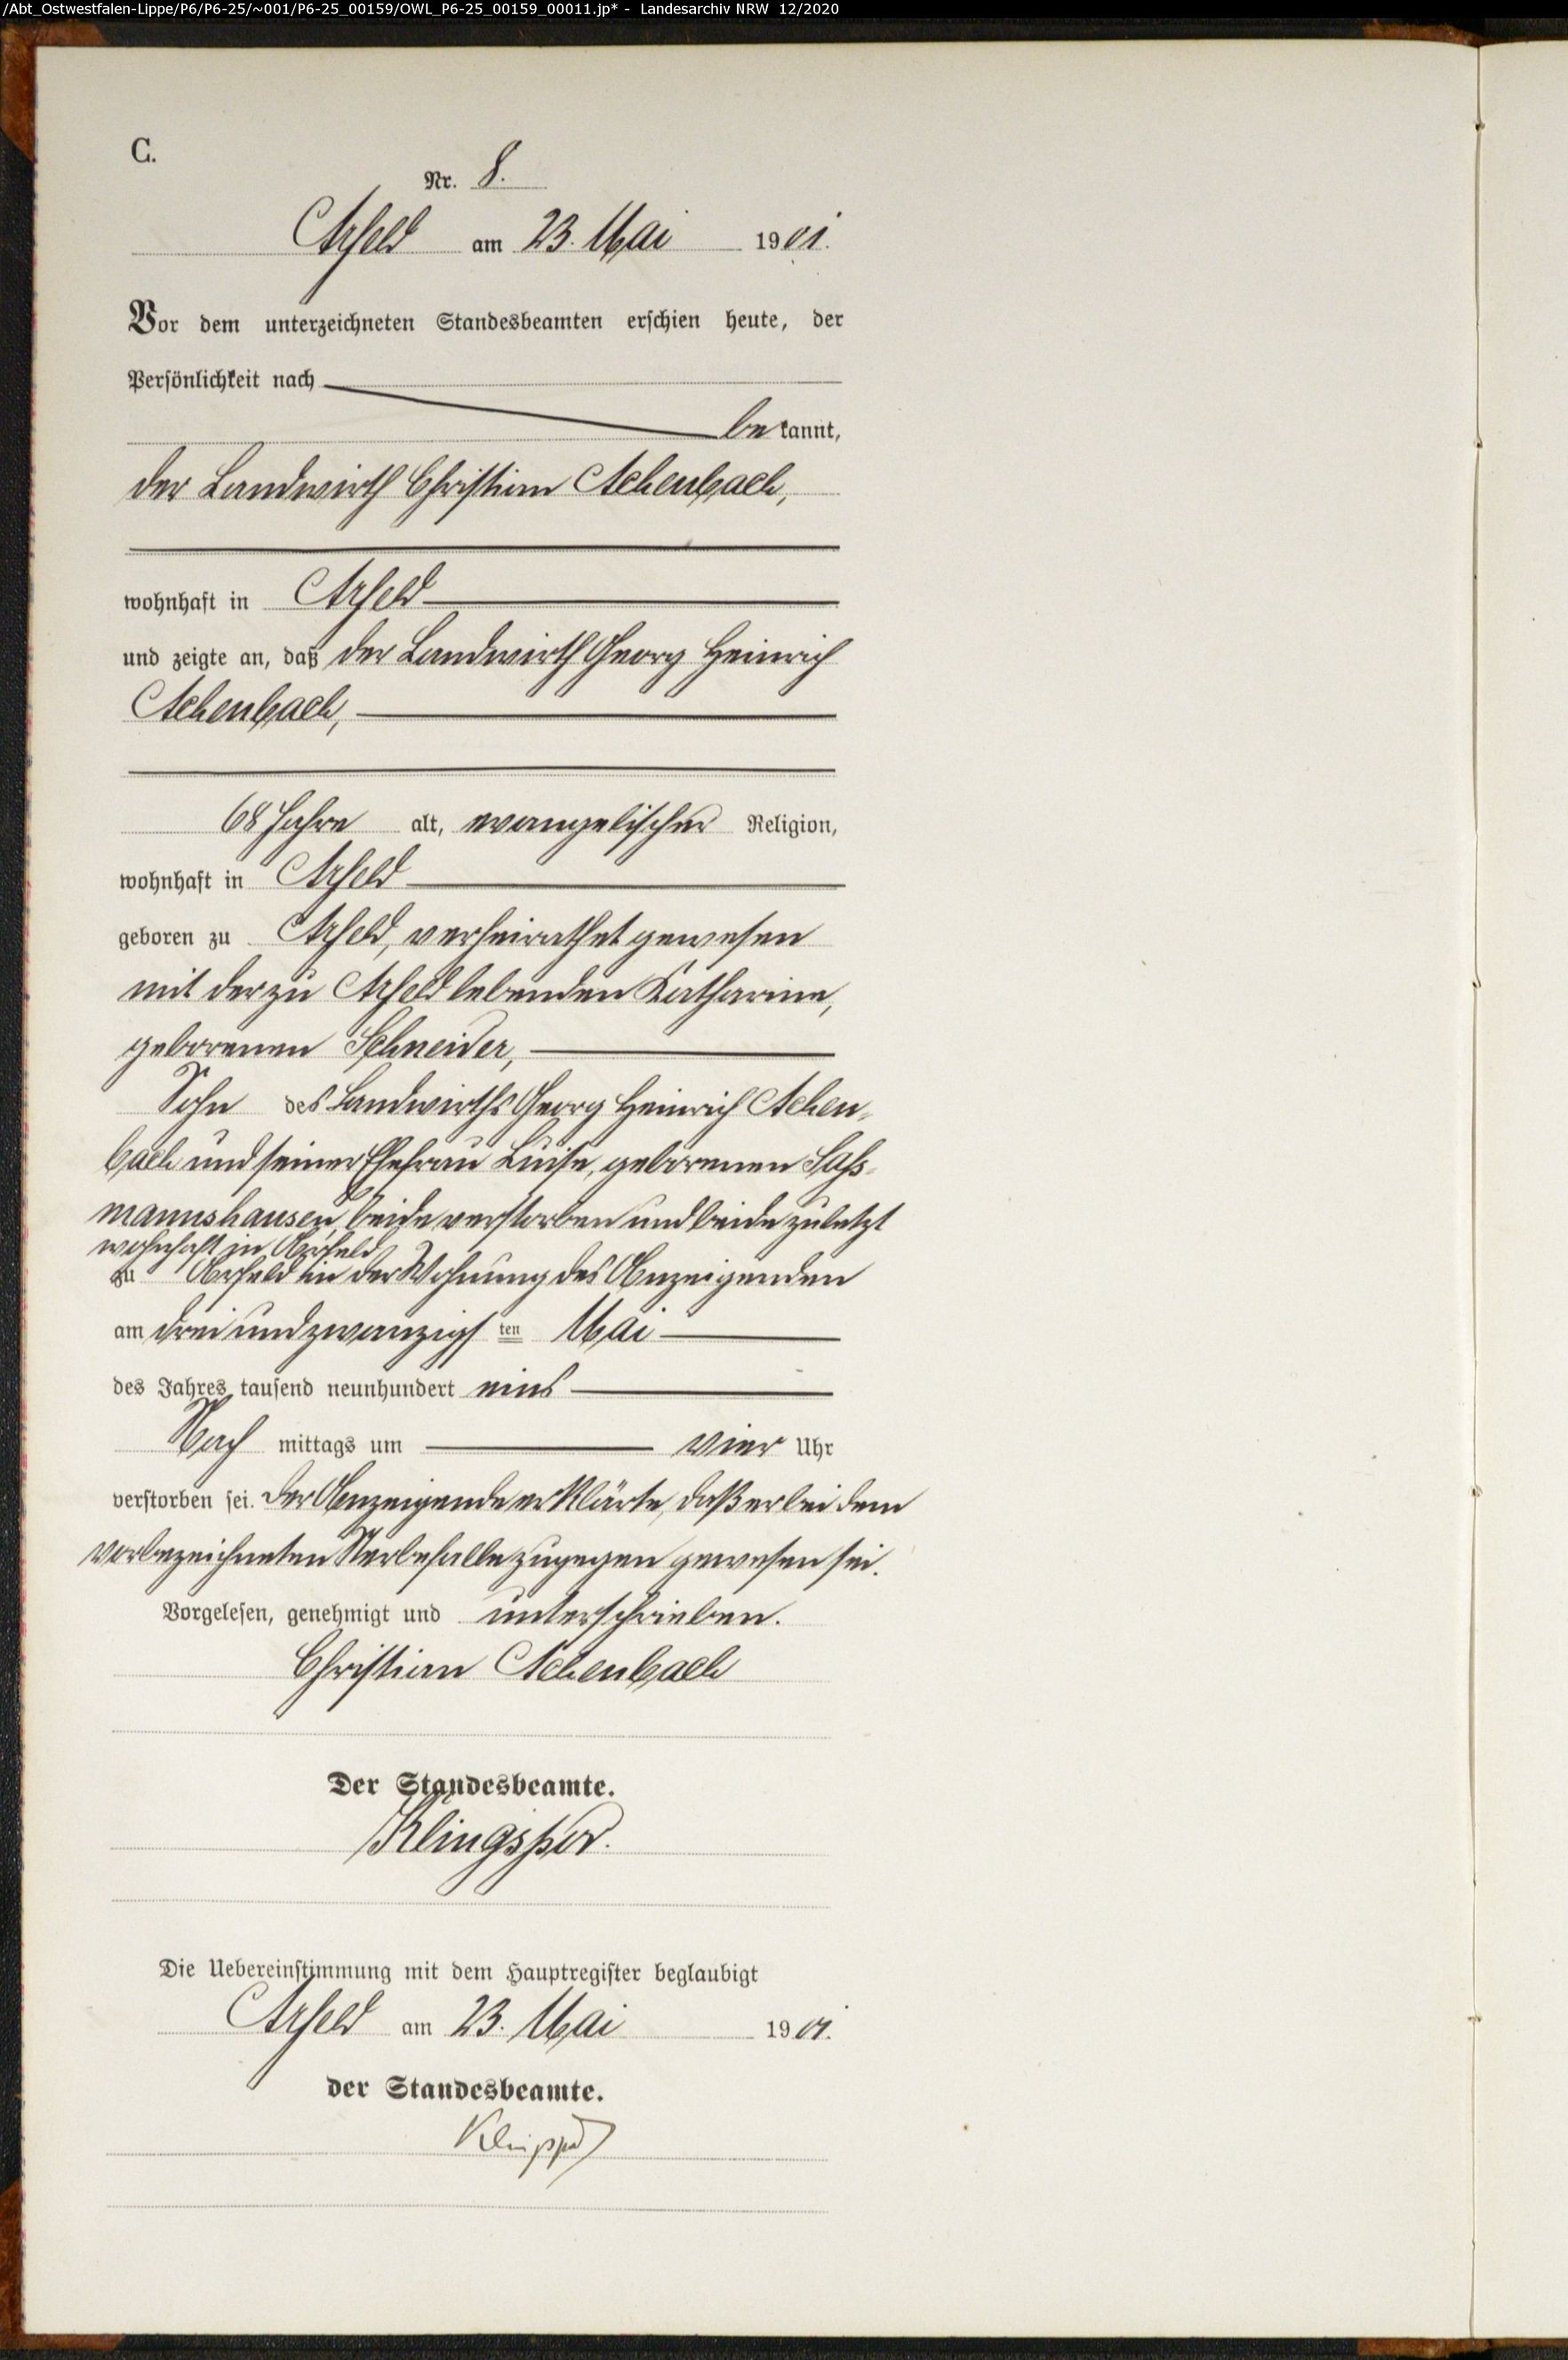 /Abt_Ostwestfalen-Lippe/P6/P6-25/~001/P6-25_00159/OWL_P6-25_00159_00011.jp* - Landesarchiv NRW 12/2020
C.
Nr. 8.
Arfeld am 23. Mai 1901.
Vor dem unterzeichneten Standesbeamten erschien heute, der
Persönlichkeit nach
bekannt,
der Landwirth Christian Achenbach,
wohnhaft in Arfeld
und zeigte an, daß der Landwirth Georg Heinrich
Achenbach,
68 Jahre alt, evangelischer Religion,
wohnhaft in Arfeld
geboren zu Arfeld, verheirathet gewesen
mit der zu Arfeld lebenden Katharine,
geborenen Schneider,
Sohn des Landwirths Georg Heinrich Achen-
bach und seiner Ehefrau Luise, geborenen Sass-
mannshausen, beide verstorben und beide zuletzt
wohnhaft in Arfeld
zu Arfeld in der Wohnung des Anzeigenden
am drei und zwanzigsten Mai
des Jahres tausend neunhundert eins
Nachmittags um vier Uhr
verstorben sei. Der Anzeigende erklärte, daß er bei dem
vorbezeichneten Sterbefalle zugegen gewesen sei.
Vorgelesen, genehmigt und unterschrieben.
Christian Achenbach
Der Standesbeamte.
Klingspor.
Die Uebereinstimmung mit dem Hauptregister beglaubigt
Arfeld am 23. Mai 1901.
der Standesbeamte.
Klingspor